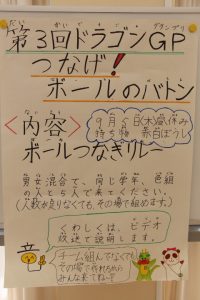 第3回ドラゴンGP
だい かい グランプリ
つなげ!
ボールのバトン
<内容>
ないよう
9月6日(木)昼休み
持ち物 赤白ぼうし
ボールつなぎリレー
男女混合で、同じ学年、色組
の人と5人で来てください。
(人数が足りなくても、その場で組めます。)
くわしくは、ビデオ
放送で説明します。
チーム組んでなくても
その場で作れるから
みんな来てねー!